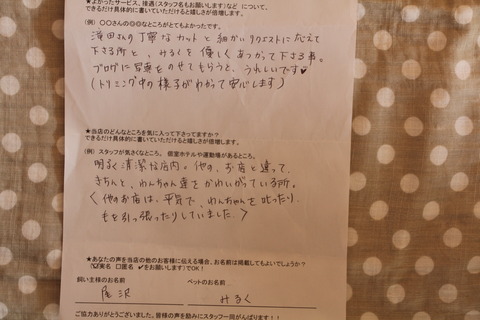 ★よかったサービス、接遇(スタッフ名もお願いします)など について、
できるだけ具体的に書いていただけると嬉しさが倍増します。
(例) 〇〇さんの◎◎なところがとてもよかったです。
澤田さんの丁寧なカットと細かいリクエストに応えて
下さる所と、みるくを優しくあつかって下さる事。
ブログに写真をのせてもらうと、うれしいです♥
(トリミング中の様子がわかって安心します)
★当店のどんなところを気に入って下さってますか?
できるだけ具体的に書いていただけると嬉しさが倍増します。
(例) スタッフが気さくなところ、 個室ホテルや運動場があるところ、
明るく清潔な店内。他の、お店と違って、
きちんと、わんちゃん達をかわいがっている所。
〈他のお店は、平気で、わんちゃんを叱ったり、
毛を引っ張ったりしていました。〉
★あなたの声を当店の他のお客様に伝える場合、お名前は掲載してもよいでしょうか?
(☑実名 □匿名 ✔をお願いします)でOK!
飼い主様のお名前 ペットのお名前
尾沢 みるく
ご協力ありがとうございました。皆様の声を励みにスタッフ一同がんばります!!